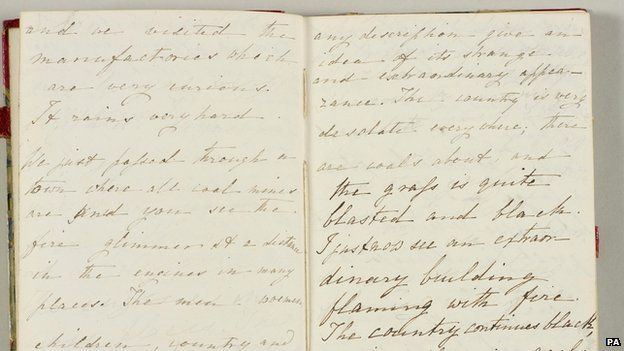 and we visited the
manufactories which
are very curious.
It rains very hard.
We just passed through a
town where all coal mines
are and you see the
fire glimmer at a distance
in the engines in many
places. The men women
children, country and
any description give an
idea of its strange
and extraordinary appea-
rance. The country is very
desolate everywhere; there
are coals about, and
the grass is quite
blasted and black.
I just now see an extraor-
dinary building
flaming with fire.
The country continues black
PA